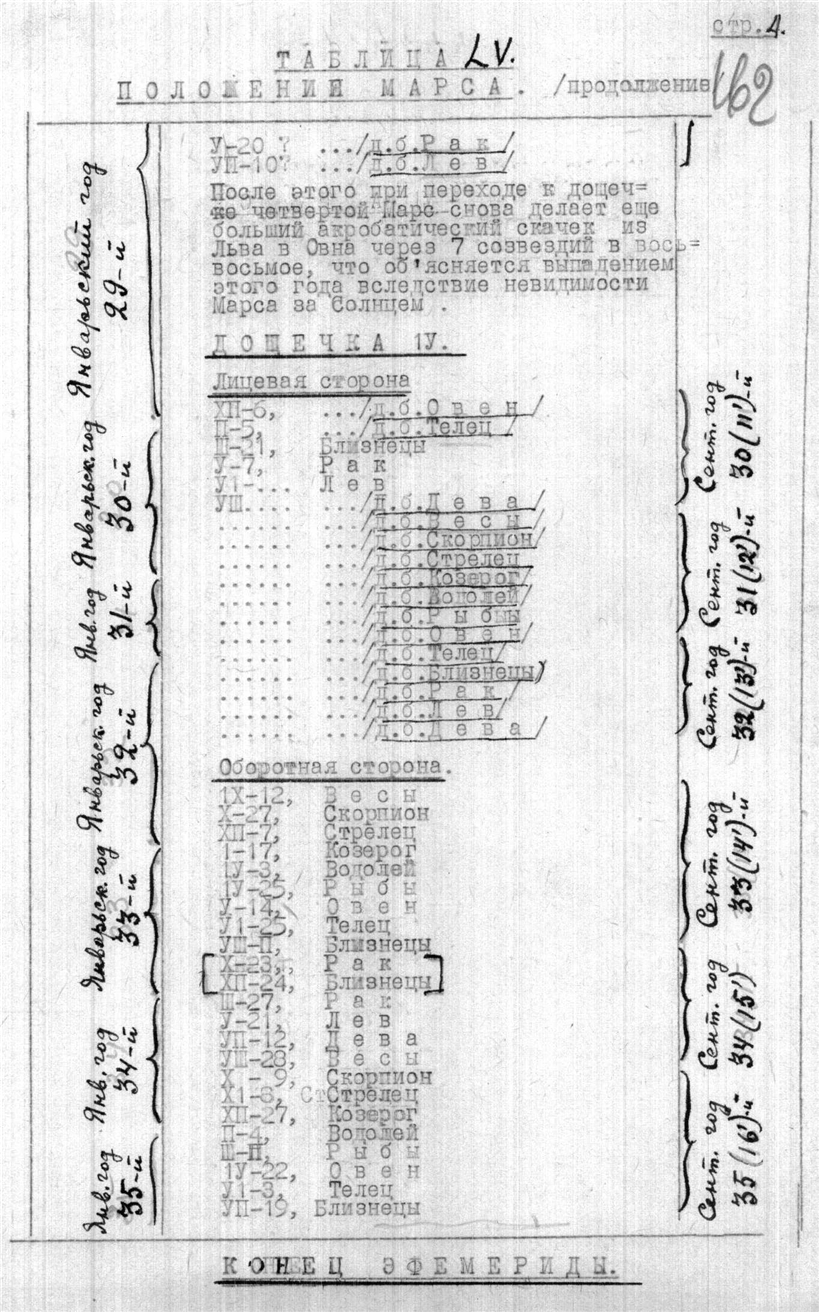 стр.4.
ТАБЛИЦА LV.
ПОЛОЖЕНИЕ МАРСА. /продолжение/
162
У-20 ? .../д.б.Рак/
УП-10? .../д.б.Лев/
После этого при переходе к дощеч=
ке четвертой Марс снова делает еще
больший акробатический скачек из
Льва в Овна через 7 созвездий в вось=
восьмое, что об'ясняется выпадением
этого года вследствие невидимости
Марса за Солнцем .
ДОЩЕЧКА 1У.
Лицевая сторона
ХП-6, .../д.б.Овен/
П-5, .../д.б.Телец/
Ш-21, Близнецы
У-7, Рак
У1-... Лев
УШ..... .../д.б.Дева/
....... .../д.б.Весы/
....... .../д.б.Скорпион/
....... .../д.б.Стрелец
....... .../д.б.Козерог/
....... .../д.б.Водолей/
....... .../д.б.Рыбы
....... .../д.б.Овен/
....... .../д.б.Телец/
....... .../д.б.Близнецы)
....... .../д.б.Рак/
....... .../д.б.Лев/
....... .../д.б.Дева/
Оборотная сторона.
1Х-12, Весы
Х-27, Скорпион
ХП-7, Стрелец
1-17, Козерог
1У-3, Водолей
1У-25, Рыбы
У-14, Овен
У1-25, Телец
УШ-П, Близнецы
[Х-23, Рак
ХП-24, Близнецы]
Ш-27, Рак
У-21, Лев
УП-12, Дева
УШ-28, Весы
Х - 9, Скорпион
Х1-8, СтСтрелец
ХП-27, Козерог
П-4, Водолей
Ш-П, Рыбы
1У-22, Овен
У1-3, Телец
УП-19, Близнецы
КОНЕЦ ЭФЕМЕРИДЫ.
Январьский год
29-й
Январьск. год
30-й
Янв. год
31-й
Январьск. год
32-й
Январьск. год
33-й
Янв. год
34-й
Янв. год
35-й
Сент. год
30(11')-й
Сент. год
31(12')-й
Сент. год
32(13')-й
Сент. год
33(14')-й
Сент. год
34(15')
Сент. год
35(16')-й